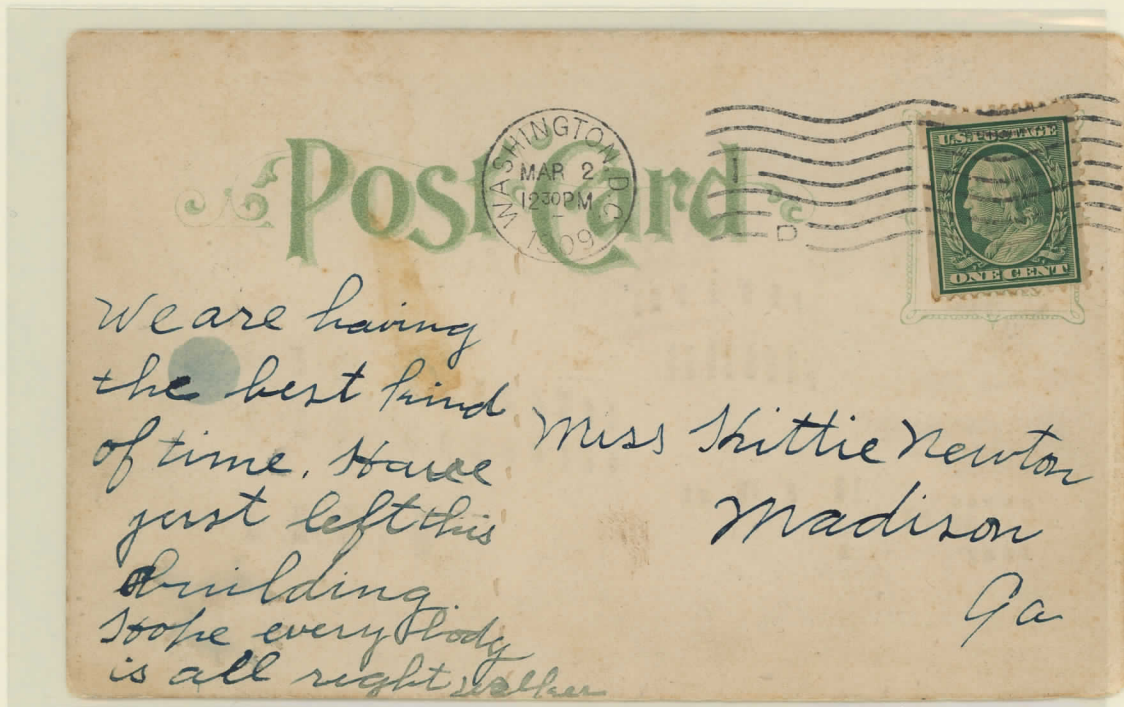 Post Card
WASHINGTON, D.C.
MAR 2
12 30 PM
1909
1
D
U.S. POSTAGE
ONE CENT
We are having
the best kind
of time. Have
just left this
building.
Hope every body
is all right Walker
Miss Kittie Newton
Madison
Ga